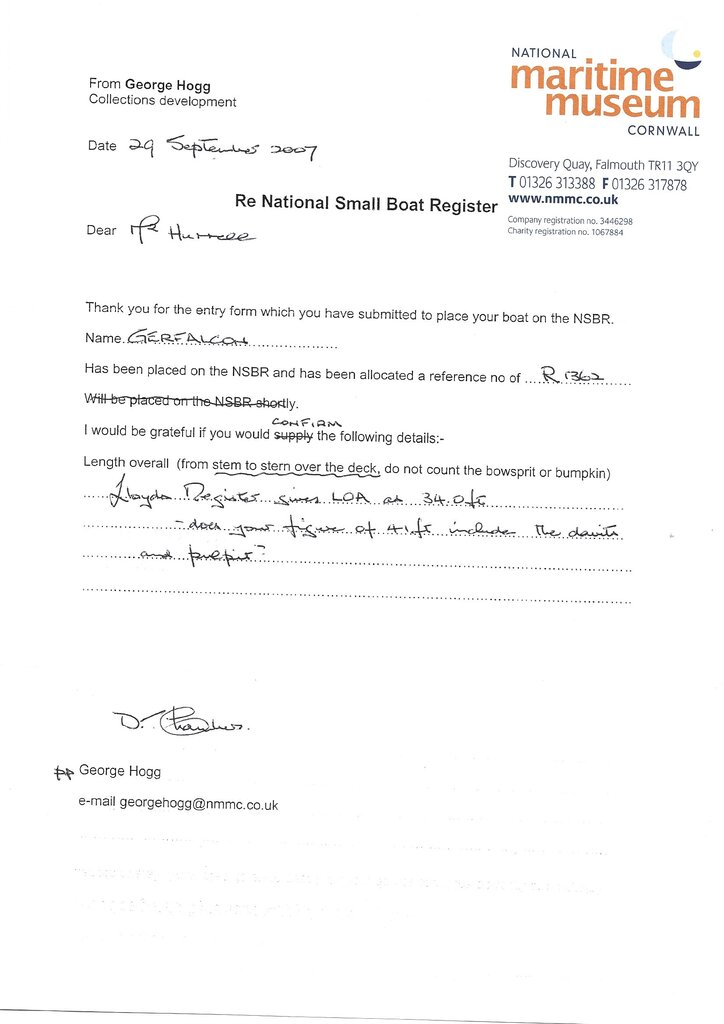 NATIONAL
maritime
museum
CORNWALL
From George Hogg
Collections development
Date 29 September 2007
Discovery Quay, Falmouth TR11 3QY
T 01326 313388 F 01326 317878
www.nmmc.co.uk
Company registration no. 3446298
Charity registration no. 1067884
Re National Small Boat Register
Dear Mr Hurrell
Thank you for the entry form which you have submitted to place your boat on the NSBR.
Name. GERFALCON
Has been placed on the NSBR and has been allocated a reference no of ....R1362
Will be placed on the NSBR shortly.
CONFIRM
I would be grateful if you would supply the following details:-
Length overall (from stem to stern over the deck, do not count the bowsprit or bumpkin)
Lloyds Register gives LOA as 34.0ft
- does your figure of 41ft include the davits
and pulpit?
D. Chandler.
pp George Hogg
e-mail georgehogg@nmmc.co.uk